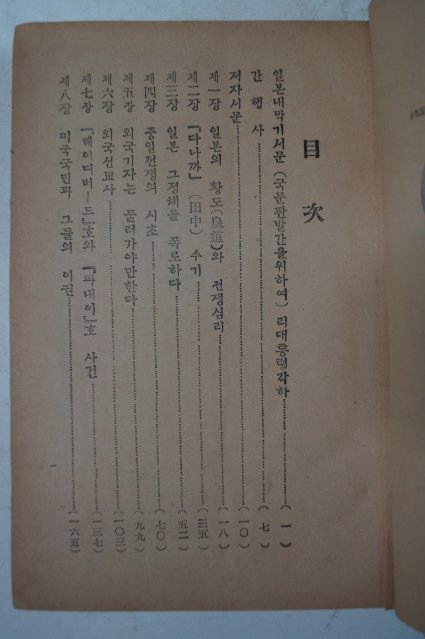 目次
일본내막기서문 (국문판발간을위하여) 리대통령각하 (一)
간행사 (七)
저자서문 (一〇)
제一장 일본의 황도(皇道)와 전쟁심리 (一八)
제二장 『다나까』(田中) 수기 (三五)
제三장 일본 그정체를 폭로하다 (五二)
제四장 중일전쟁의 시초 (七〇)
제五장 외국기자는 물러가야만한다 (九九)
제六장 외국선교사 (一〇三)
제七장 『레이디버ー드』호와 『파내이』호 사건 (一三七)
제八장 미국국민과 그들의 이권 (一六五)